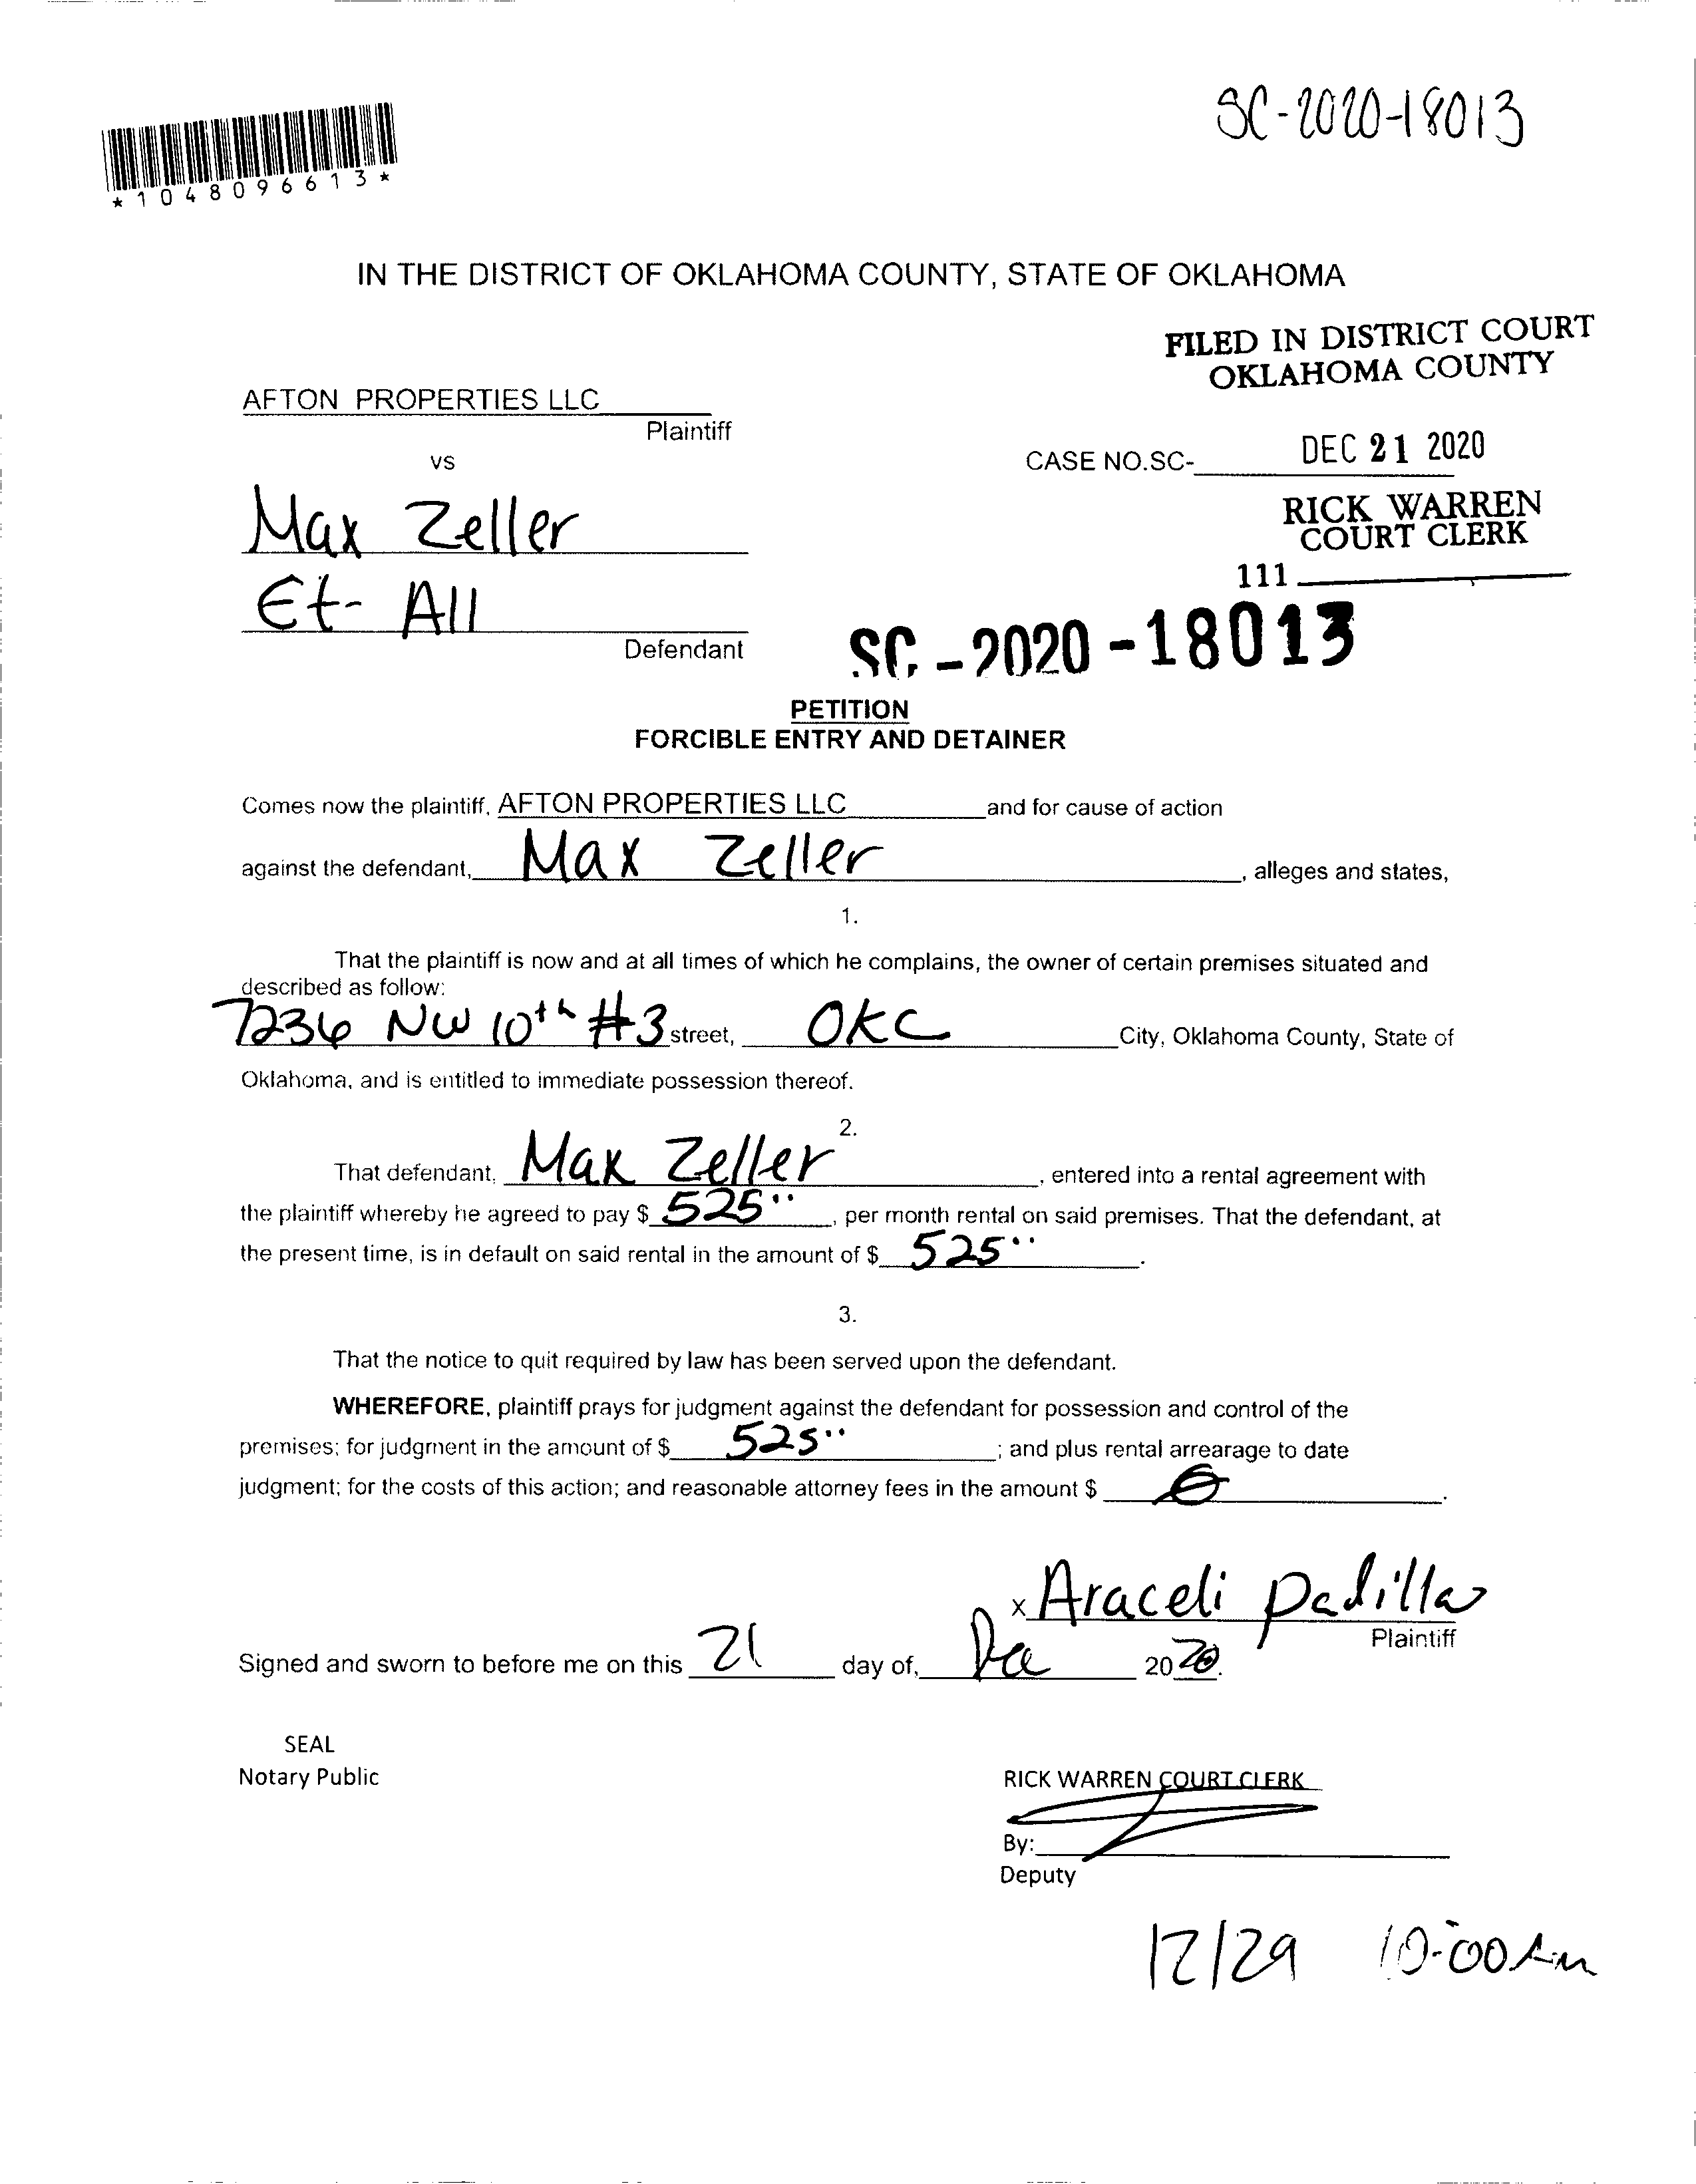 SC-2020-18013
*1048096613*
IN THE DISTRICT OF OKLAHOMA COUNTY, STATE OF OKLAHOMA
FILED IN DISTRICT COURT
OKLAHOMA COUNTY
AFTON PROPERTIES LLC
Plaintiff
vs
CASE NO.SC-
DEC 21 2020
Max Zeller
RICK WARREN
COURT CLERK
111
Et- All
Defendant
SC-2020-18013
PETITION
FORCIBLE ENTRY AND DETAINER
Comes now the plaintiff, AFTON PROPERTIES LLC and for cause of action
against the defendant, Max Zeller, alleges and states,
1.
That the plaintiff is now and at all times of which he complains, the owner of certain premises situated and
described as follow:
7236 NW 10th #3 street, OKC City, Oklahoma County, State of
Oklahoma, and is entitled to immediate possession thereof.
2.
That defendant, Max Zeller, entered into a rental agreement with
the plaintiff whereby he agreed to pay $ 525.., per month rental on said premises. That the defendant, at
the present time, is in default on said rental in the amount of $ 525...
3.
That the notice to quit required by law has been served upon the defendant.
WHEREFORE, plaintiff prays for judgment against the defendant for possession and control of the
premises; for judgment in the amount of $ 525..; and plus rental arrearage to date
judgment; for the costs of this action; and reasonable attorney fees in the amount $ 0.
x Araceli Padilla
Plaintiff
Signed and sworn to before me on this 21 day of, Dec 2020.
SEAL
Notary Public
RICK WARREN COURT CLERK
By:
Deputy
12/29 10:00 Am